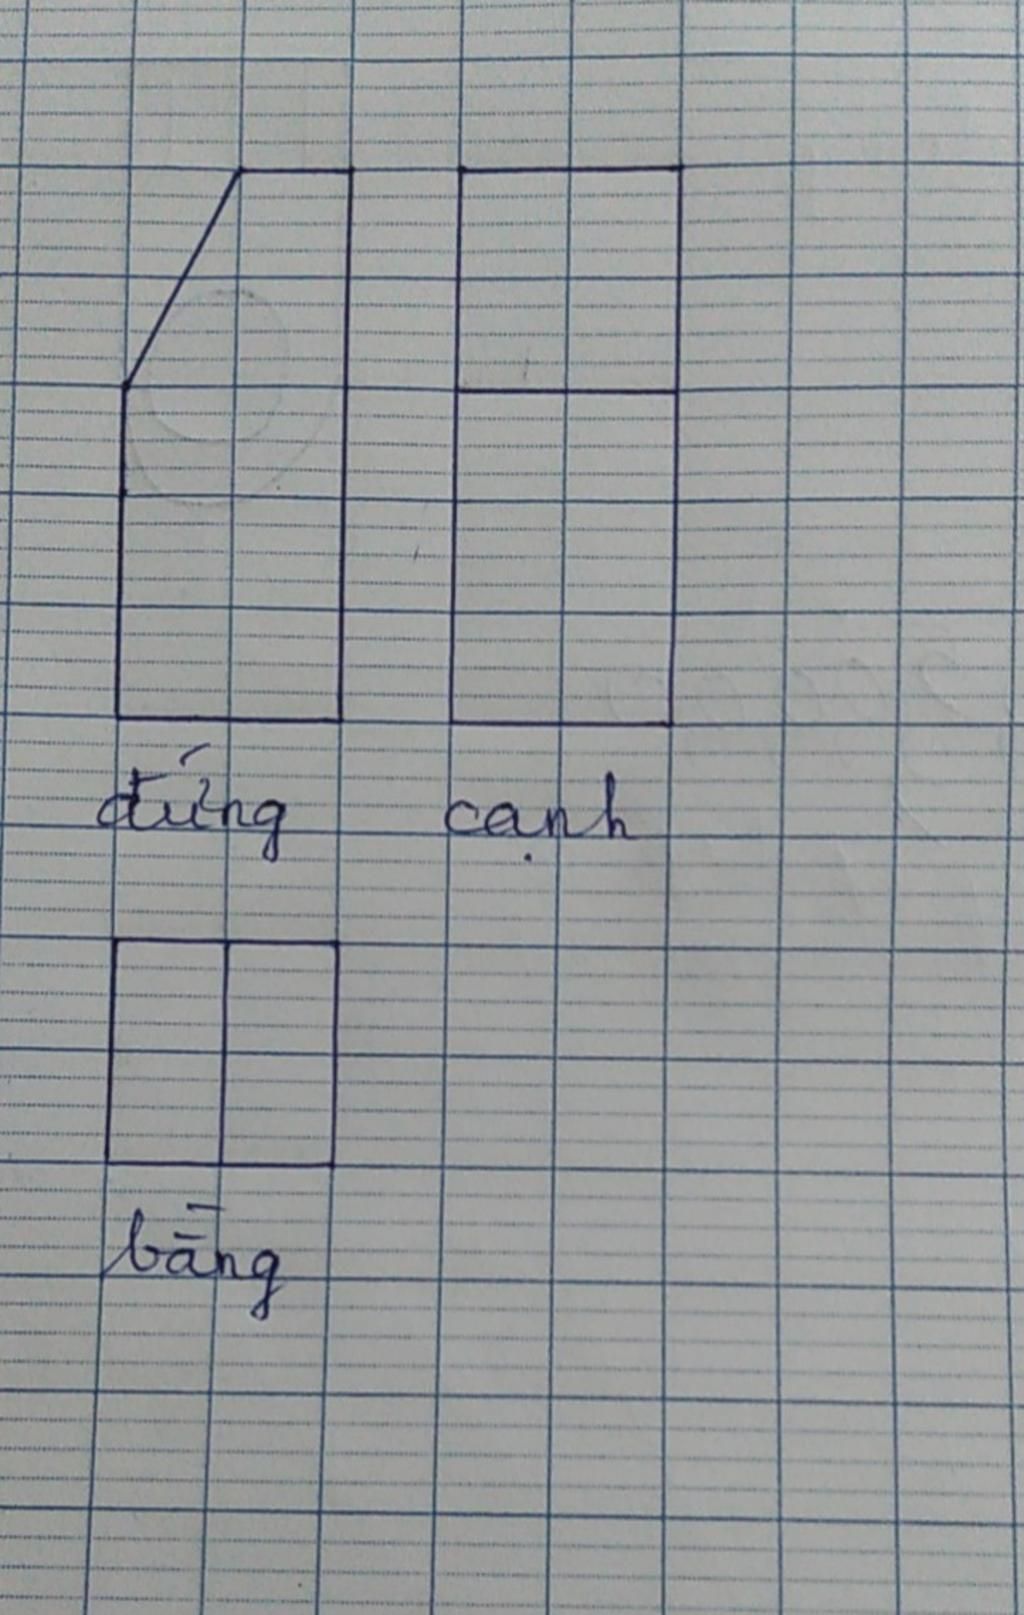 đứng
cạnh
bằng